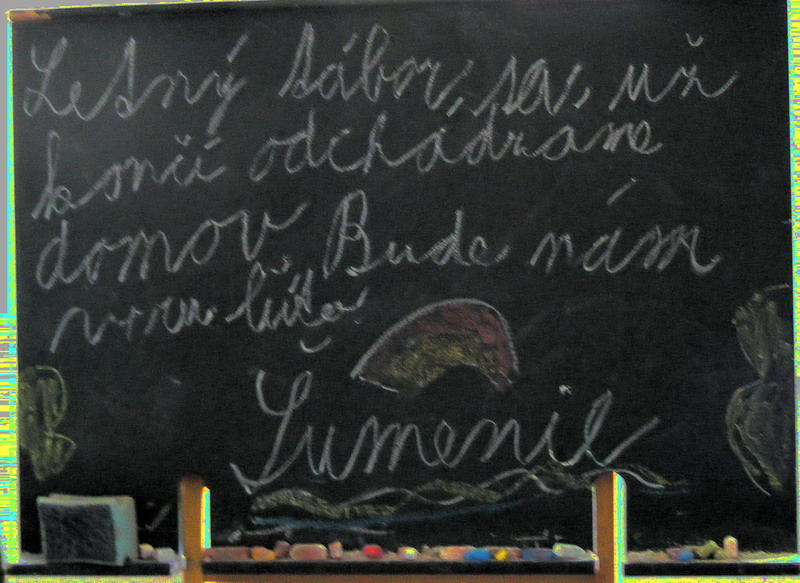 Letný tábor, sa, už
končí odchádzame
domov Bude nám
veru ľúto
Šumenie